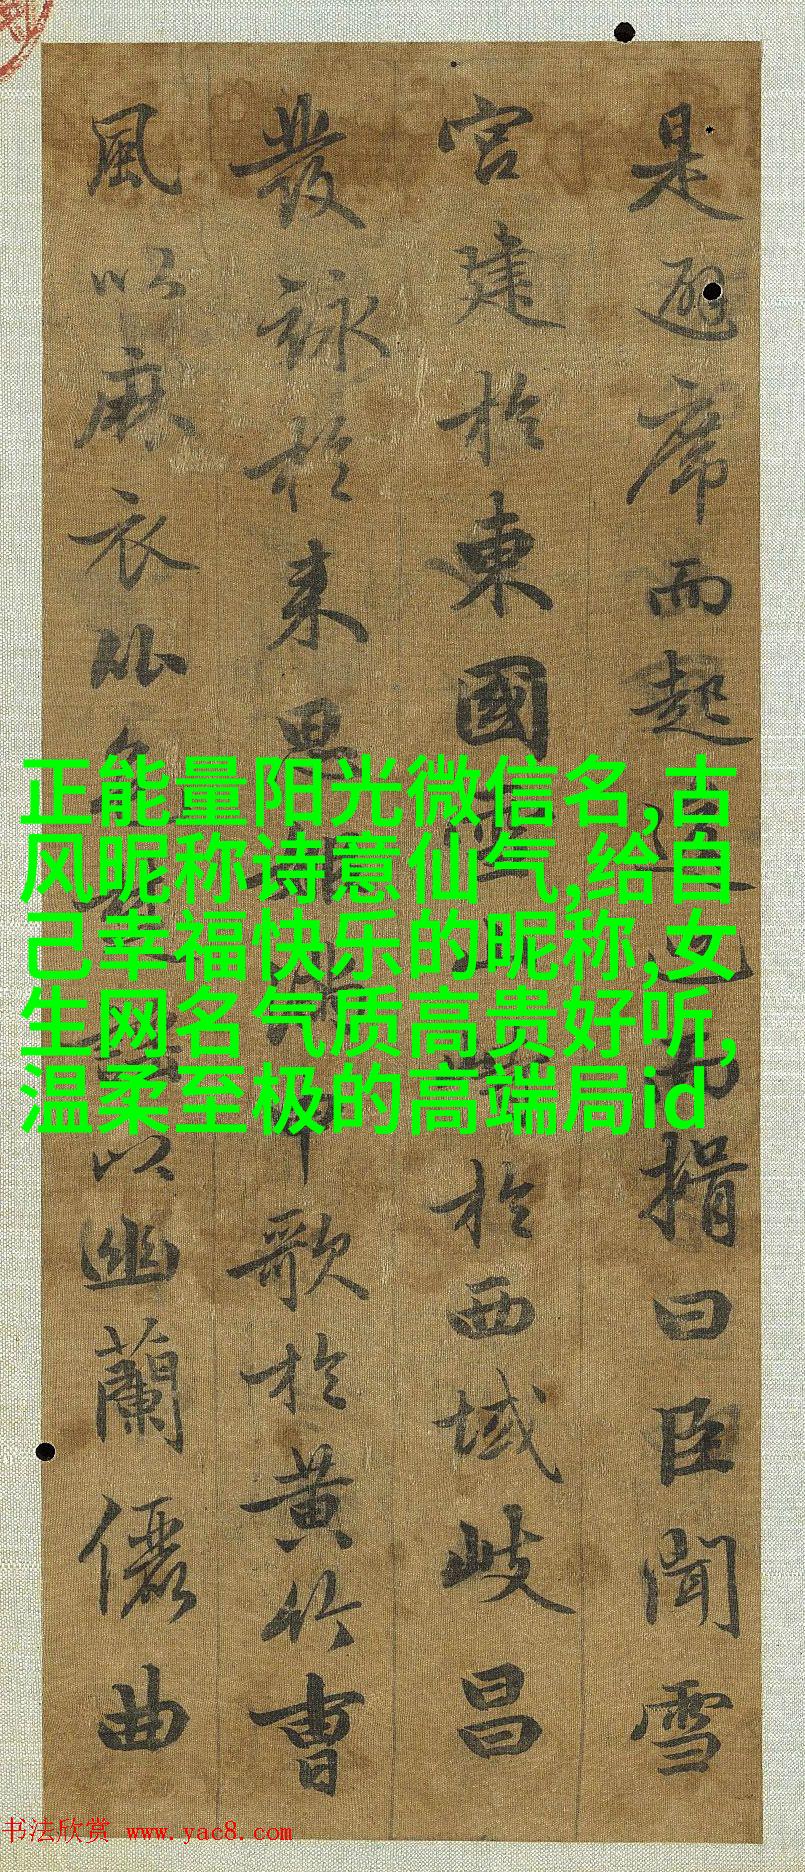 是避席而起揖曰臣聞雪
宮建於東國於西域岐昌
發詠於来思歌於黄竹曹
風以麻衣比以幽蘭儷曲
正能量阳光微信名,古
风昵称诗意仙气,给自
己幸福快乐的昵称,女
生网名气质高贵好听,
温柔至极的高端局id
书法欣赏 www.yac8.com